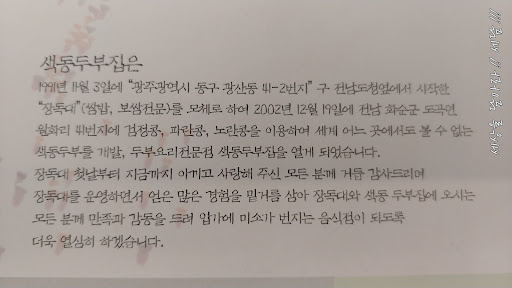 색동두부집은
1991년 11월 3일에 "광주광역시 동구 광산동 41-2번지" 구 전남도청옆에서 시작한
"장독대"(쌈밥, 보쌈전문)를 모체로 하여 2002년 12월 19일에 전남 화순군 도곡면
월화리 41번지에 검정콩, 파란콩, 노란콩을 이용하여 세계 어느 곳에서도 볼 수 없는
색동두부를 개발, 두부요리전문점 색동두부집을 열게 되었습니다.
장독대 첫날부터 지금까지 아끼고 사랑해 주신 모든 분께 거듭 감사드리며
장독대를 운영하면서 얻은 많은 경험을 밑거름 삼아 장독대와 색동 두부집에 오시는
모든 분께 만족과 감동을 드려 입가에 미소가 번지는 음식점이 되도록
더욱 열심히 하겠습니다.